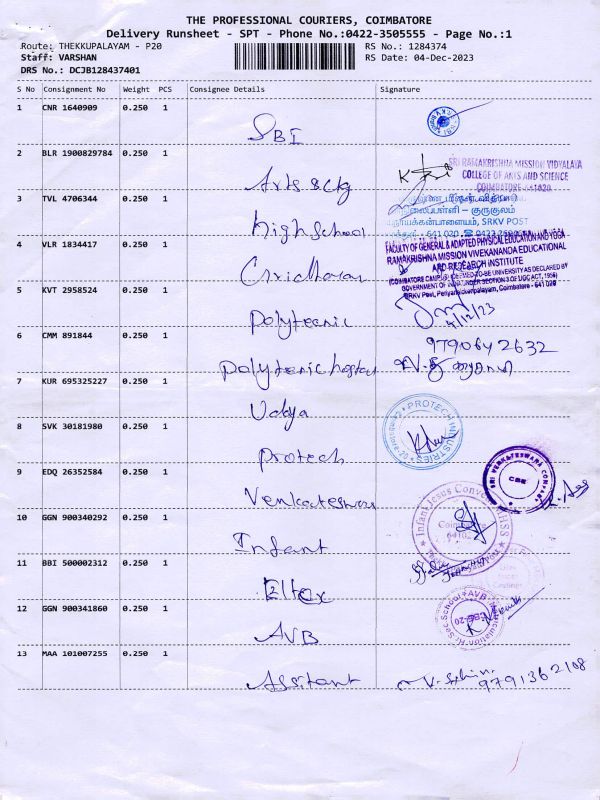 THE PROFESSIONAL COURIERS, COIMBATORE
Delivery Runsheet - SPT - Phone No.:0422-3505555 - Page No.:1
Route: THEKKUPALAYAM - P20
RS No.: 1284374
Staff: VARSHAN
RS Date: 04-Dec-2023
DRS No.: DCJB128437401
S No Consignment No Weight PCS Consignee Details Signature
1 CNR 1640909 0.250 1
SBI
2 BLR 1900829784 0.250 1
SRI RAMAKRISHNA MISSION VIDYALAYA
COLLEGE OF ARTS AND SCIENCE
COIMBATORE-641020
Arts & 
3 TVL 4706344 0.250 1
குருகுலம்
SRKV POST
641 020
High School
4 VLR 1834417 0.250 1
FACULTY OF GENERAL & ADAPTED PHYSICAL EDUCATION AND YOGA
RAMAKRISHNA MISSION VIVEKANANDA EDUCATIONAL
AND RESEARCH INSTITUTE
(COIMBATORE CAMPUS) (DEEMED-TO-BE UNIVERSITY AS DECLARED BY
GOVERNMENT OF INDIA UNDER SECTION 3 OF UGC ACT, 1956)
SRKV Post, Periyanaickenpalayam, Coimbatore - 641 020
5 KVT 2958524 0.250 1
Polytecnic
4/12/23
6 CMM 891844 0.250 1
9790642632
Polytenic hostel
7 KUR 695325227 0.250 1
Udaya
8 SVK 30181980 0.250 1
PROTECH INDUSTRIES
Protech
9 EDQ 26352584 0.250 1
SRI VENKATESWARA COMPANY
CBE
Venkateswara
10 GGN 900340292 0.250 1
Infant Jesus Convent
Coimbatore
Infant
11 BBI 500002312 0.250 1
Eltex
12 GGN 900341860 0.250 1
AVB
CBE-20
AVB
13 MAA 101007255 0.250 1
Assitant
9791362108